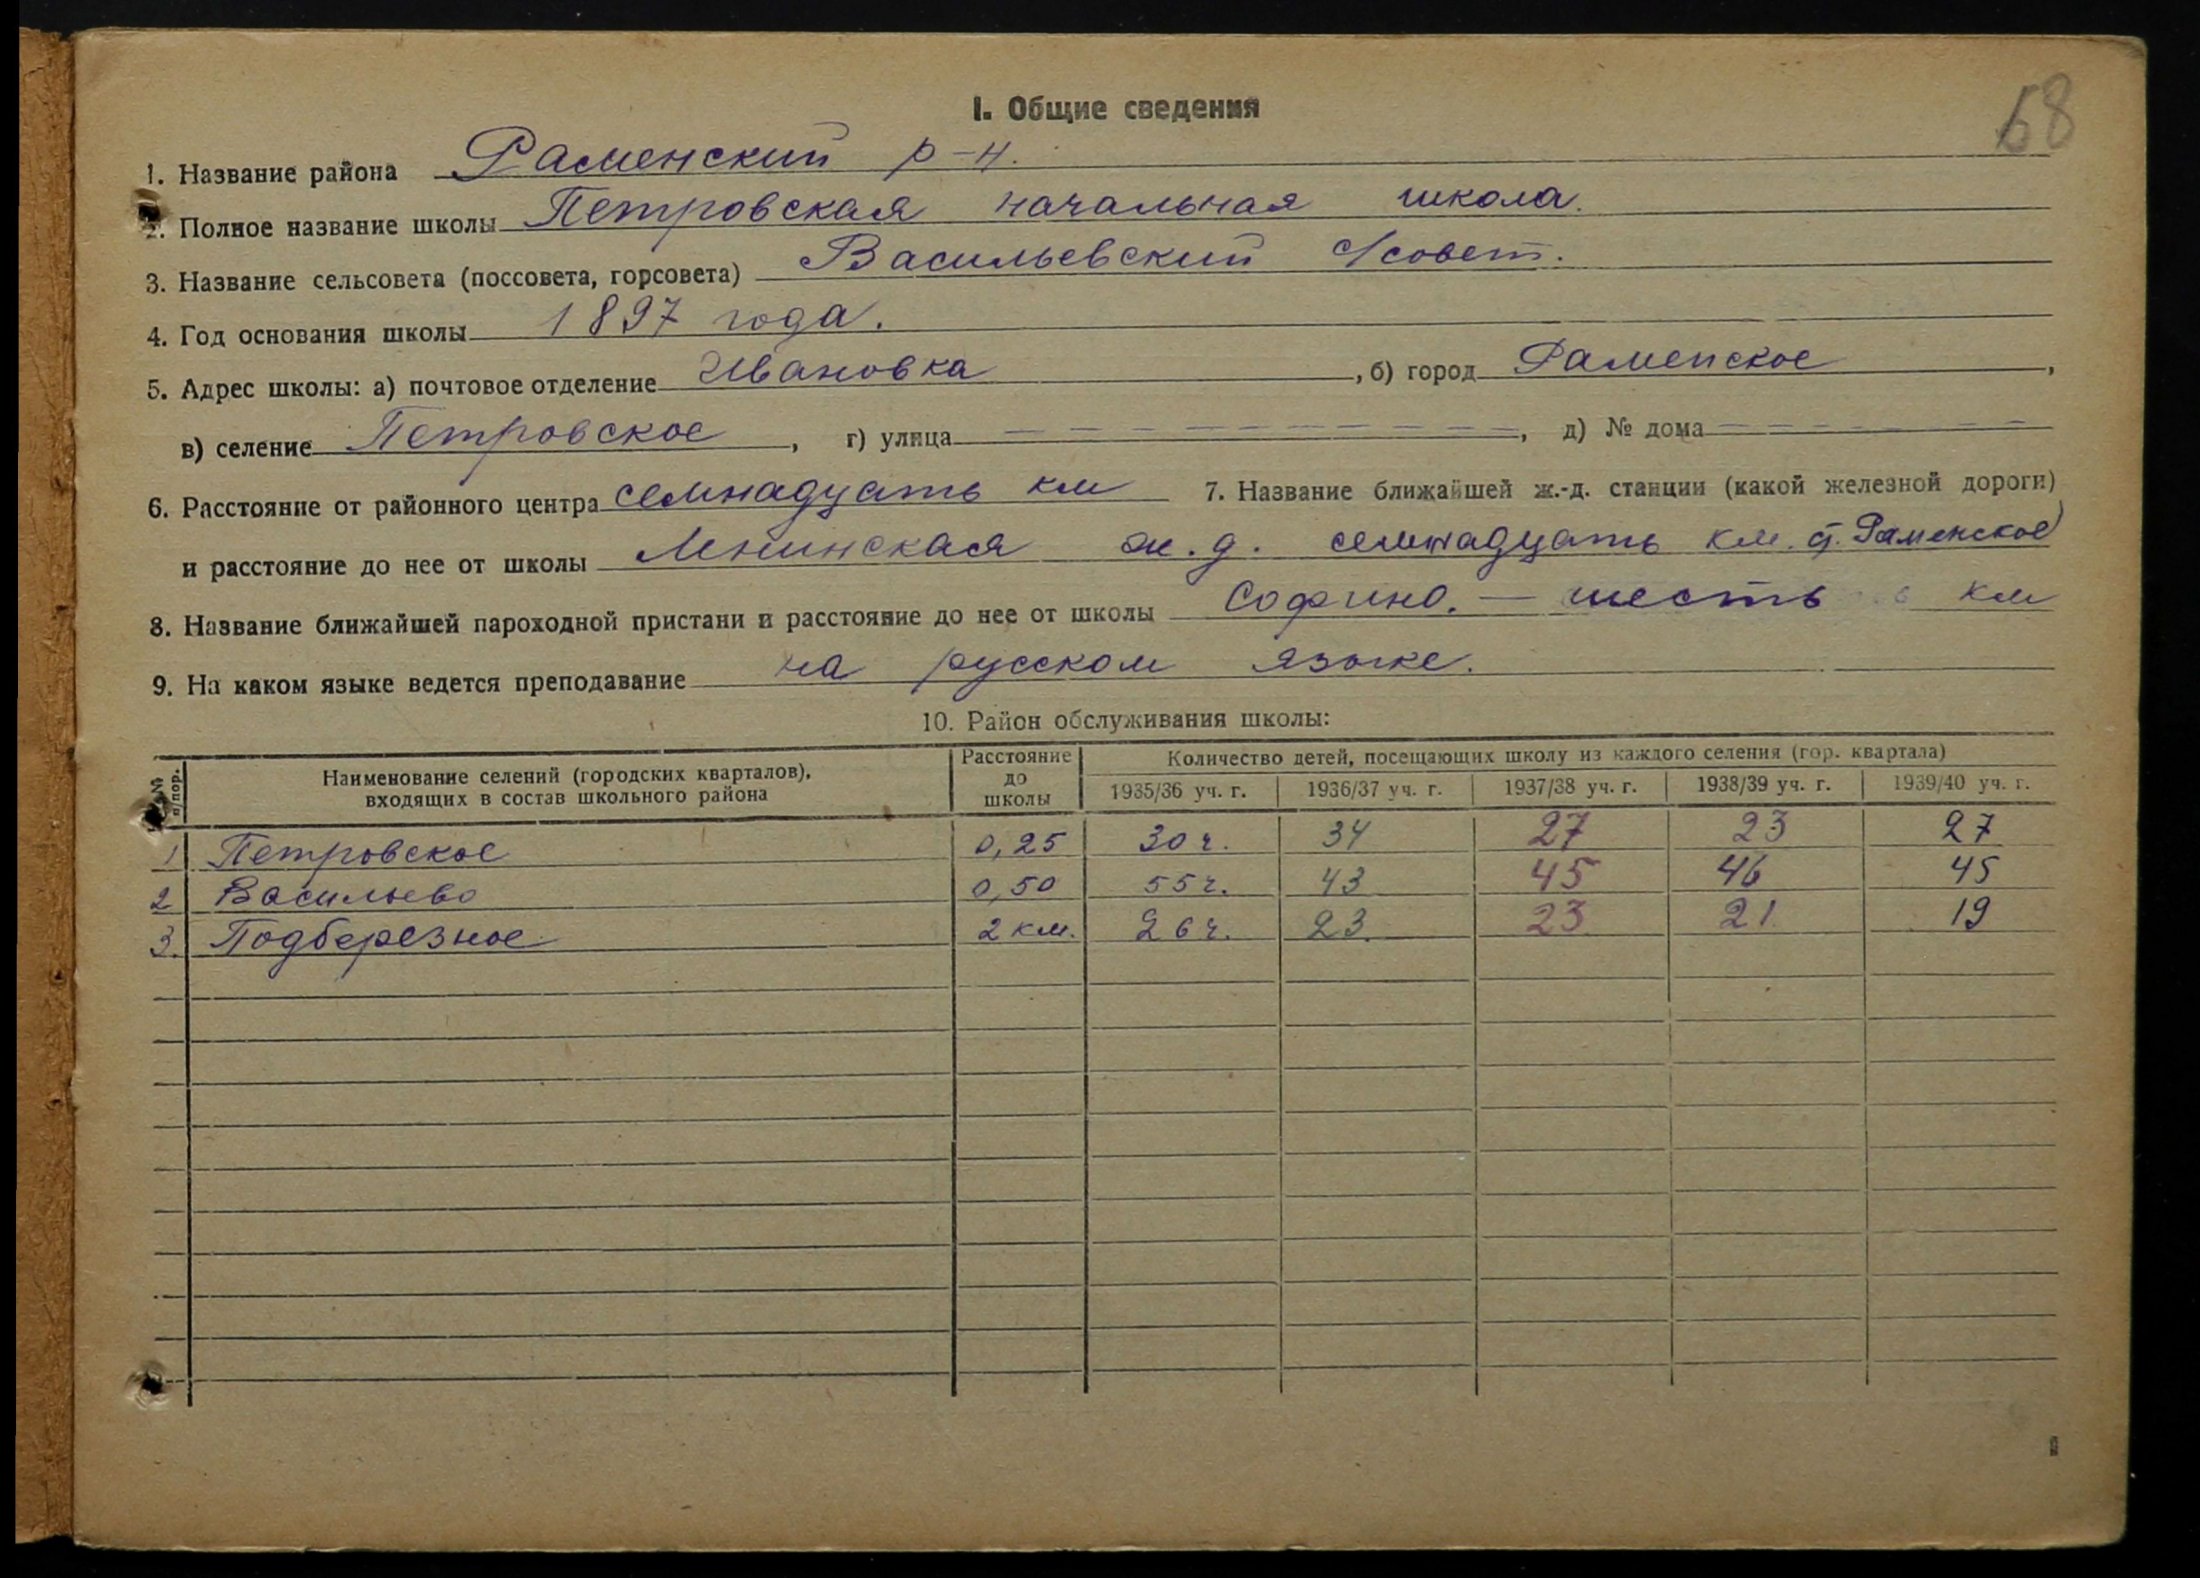 68
I. Общие сведения
1. Название района Раменский р-н.
2. Полное название школы Петровская начальная школа.
3. Название сельсовета (поссовета, горсовета) Васильевский с/совет.
4. Год основания школы 1897 года.
5. Адрес школы: а) почтовое отделение Ивановка, б) город Раменское,
в) селение Петровское, г) улица — — — — — —, д) № дома — — — — —
6. Расстояние от районного центра семнадцать км 7. Название ближайшей ж.-д. станции (какой железной дороги)
и расстояние до нее от школы Ленинская ж.д. семнадцать км. ст. Раменское
8. Название ближайшей пароходной пристани и расстояние до нее от школы Софино. — шесть км
9. На каком языке ведется преподавание на русском языке.
10. Район обслуживания школы:
№№ п/пор. Наименование селений (городских кварталов), входящих в состав школьного района Расстояние до школы Количество детей, посещающих школу из каждого селения (гор. квартала)
1935/36 уч. г. 1936/37 уч. г. 1937/38 уч. г. 1938/39 уч. г. 1939/40 уч. г.
1 Петровское 0,25 30 ч. 34 27 23 27
2 Васильево 0,50 55 ч. 43 45 46 45
3. Подберезное 2 км. 26 ч. 23. 23 21 19